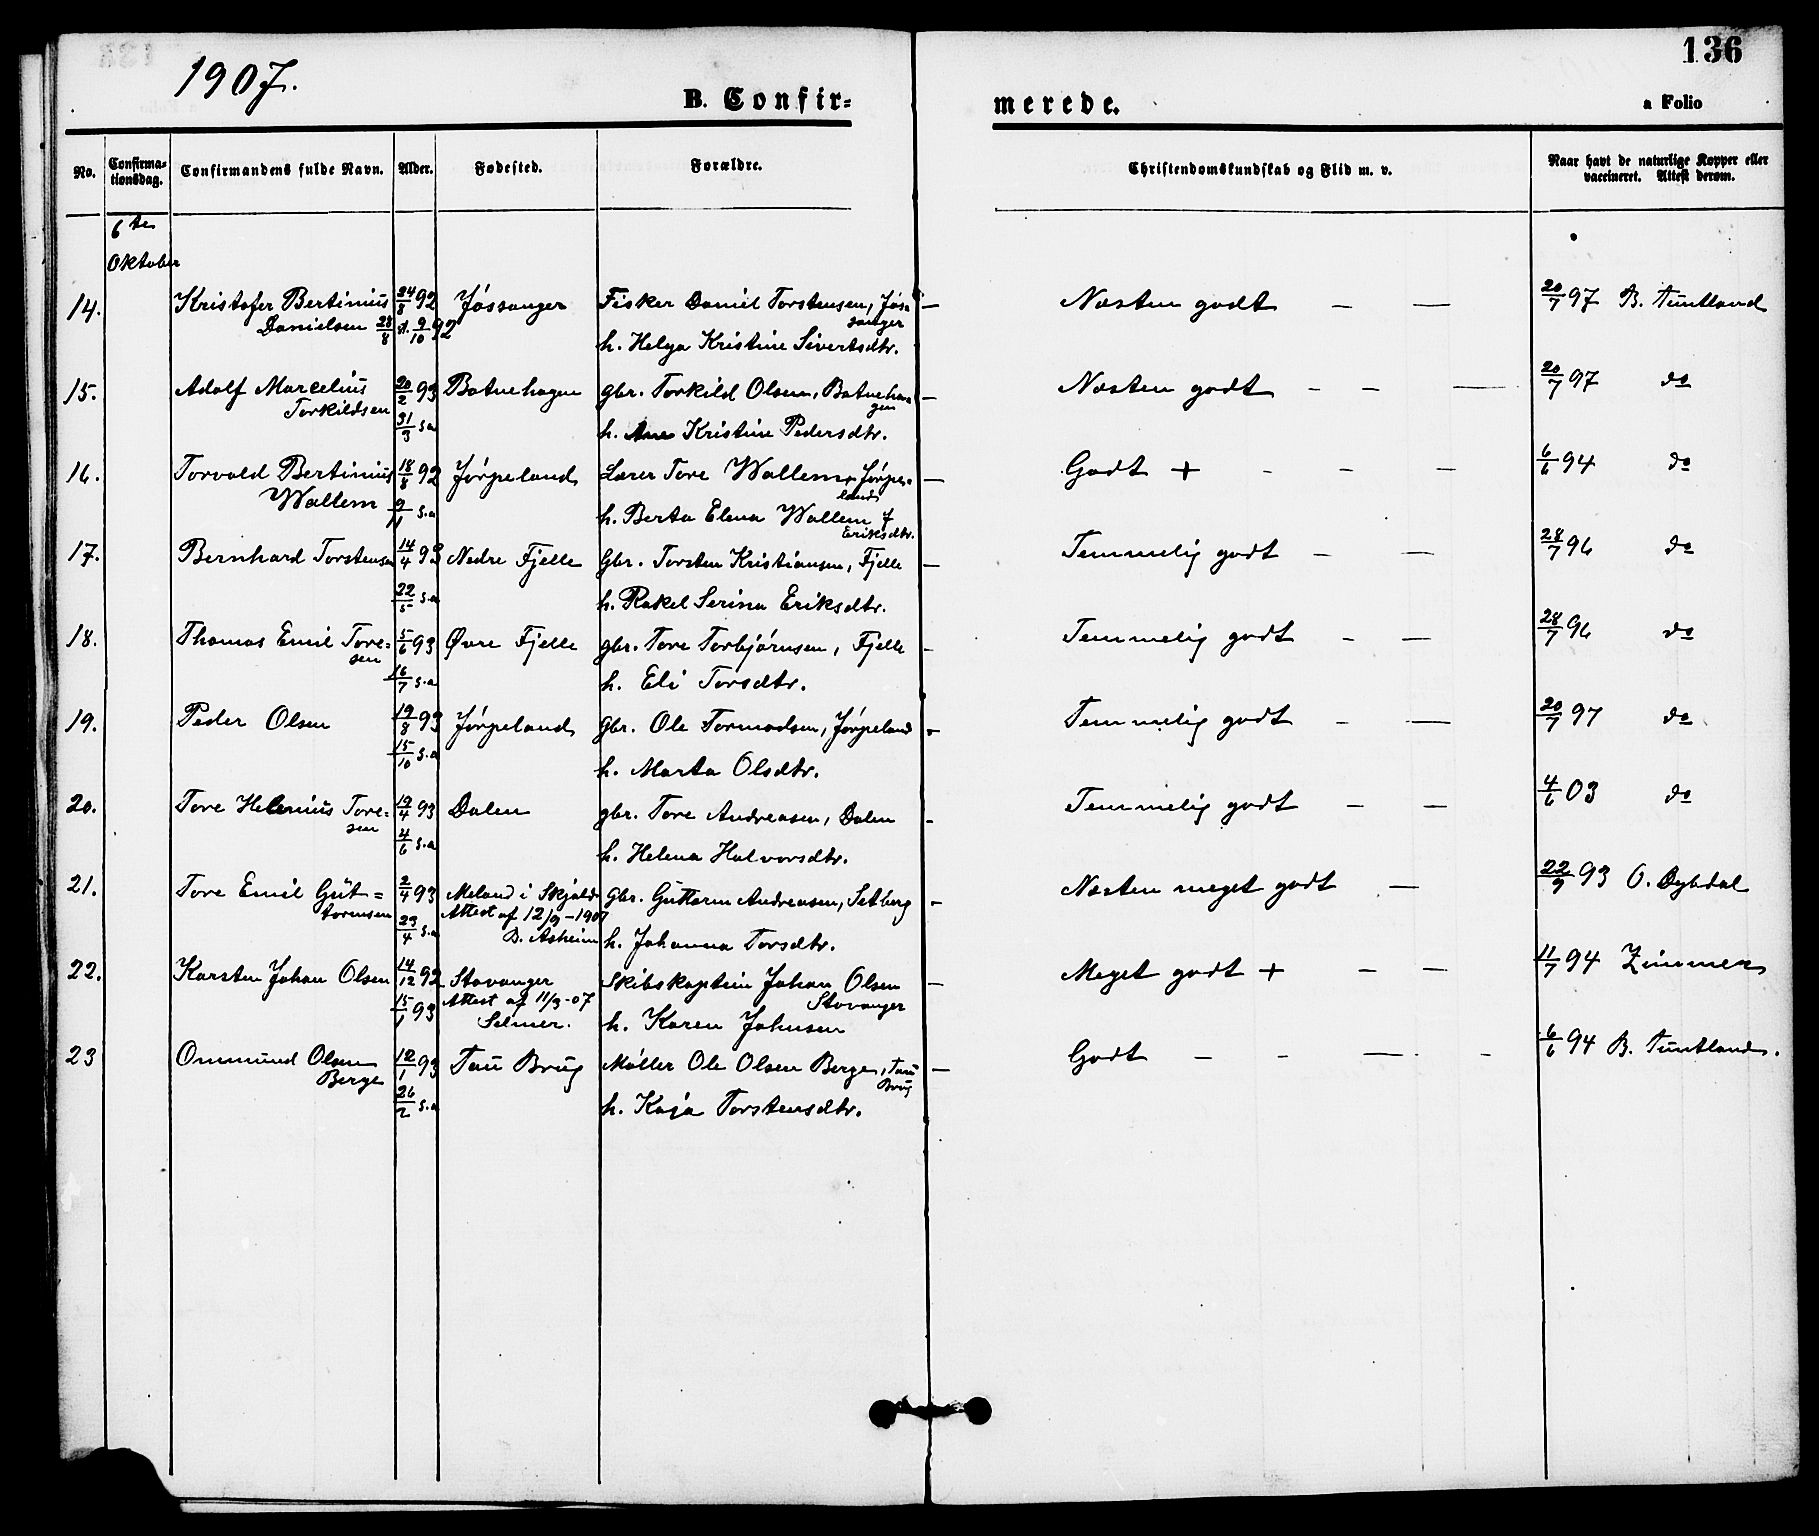 136
1907.
B. Confir=
merede.
a Folio
No.
Confirma=
tionsdag.
Confirmandens fulde Navn.
Alder.
Fødested.
Forældre.
Christendomskundskab og Flid m. v.
Naar havt de naturlige Kopper eller
vaccineret. Attest derom.
6te
Oktober
14. Kristofer Bertinius 24/8 92 Jøssanger Fisker Daniel Torstensen, Jøs= — Næsten godt — — 20/7 97 B. Tuntland
Danielsen 28/8 st. 9/10 92 sanger
h. Helga Kristine Sivertsdtr.
15. Adolf Marcelius 20/2 93 Botnehagen gbr. Torkild Olsen, Botneha= — Næsten godt — — — 20/7 97 do
Torkildsen gen
31/3 s.a h. Ane Kristine Pedersdtr.
16. Torvald Bertinius 18/8 92 Jørpeland Lærer Tore Wallem, Jørpe= — Godt + - — — 6/6 94 do
Wallem land
9/11 s.a h. Berta Elena Wallem f
Eriksdtr.
17. Bernhard Torstensen 14/4 93 Nedre Fjelle Gbr. Torsten Kristiansen, Fjelle — Temmelig godt — — 28/7 96 do
22/5 s.a h. Rakel Serina Eriksdtr.
18. Thomas Emil Tore= 5/6 93 Øvre Fjelle gbr. Tore Torbjørnsen, Fjelle - Temmelig godt — — 28/7 96 do
sen
16/7 s.a h. Eli Torsdtr.
19. Peder Olsen 19/8 93 Jørpeland gbr. Ole Tormodsen, Jørpeland - Temmelig godt — — 20/7 97 do
15/10 s.a h. Marta Olsdtr.
20. Tore Helenius Tore= 19/4 93 Dalen gbr. Tore Andreasen, Dalen - Temmelig godt — — 4/6 03 do
sen
4/6 s.a h. Helena Halvorsdtr.
21. Tore Emil Gut= 2/4 93 Meland i Skjold Gbr. Guttorm Andreasen, Setberg - Næsten meget godt — 22/9 93 O. Dybdal
tormsen Attest af 12/9-1907
23/4 s.a B. Asheim h. Johanna Torsdtr.
22. Karsten Johan Olsen 14/12 92 Stavanger Skibskaptein Johan Olsen — Meget godt + — — 11/7 94 Zimmer
15/1 93 Attest af 11/3-07 Stavanger
Selmer. h. Karen Johnsen
23 Ommund Olsen 12/1 93 Tau Brug Møller Ole Olsen Berge, Tau — Godt — - — - 6/6 94 B. Tuntland.
Berge Brug
26/2 s.a h. Kaja Torstensdtr.